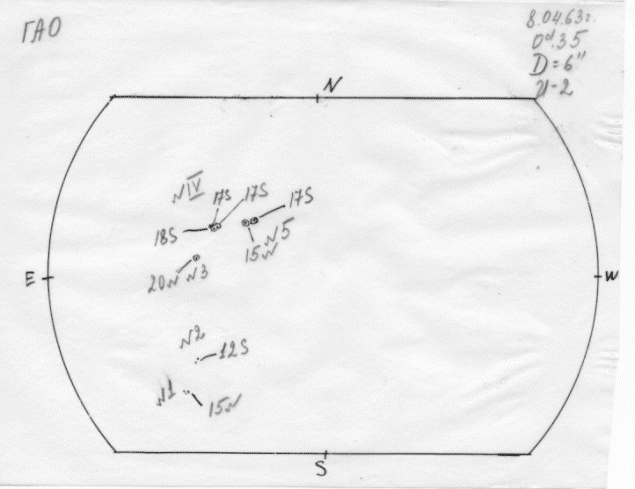 ГАО
8.04.63г.
0ᵈ.35
D=6"
И-2
N
NIV
17S
17S
17S
18S
N5
15N
E
W
20N
N3
N2
12S
N1
15N
S